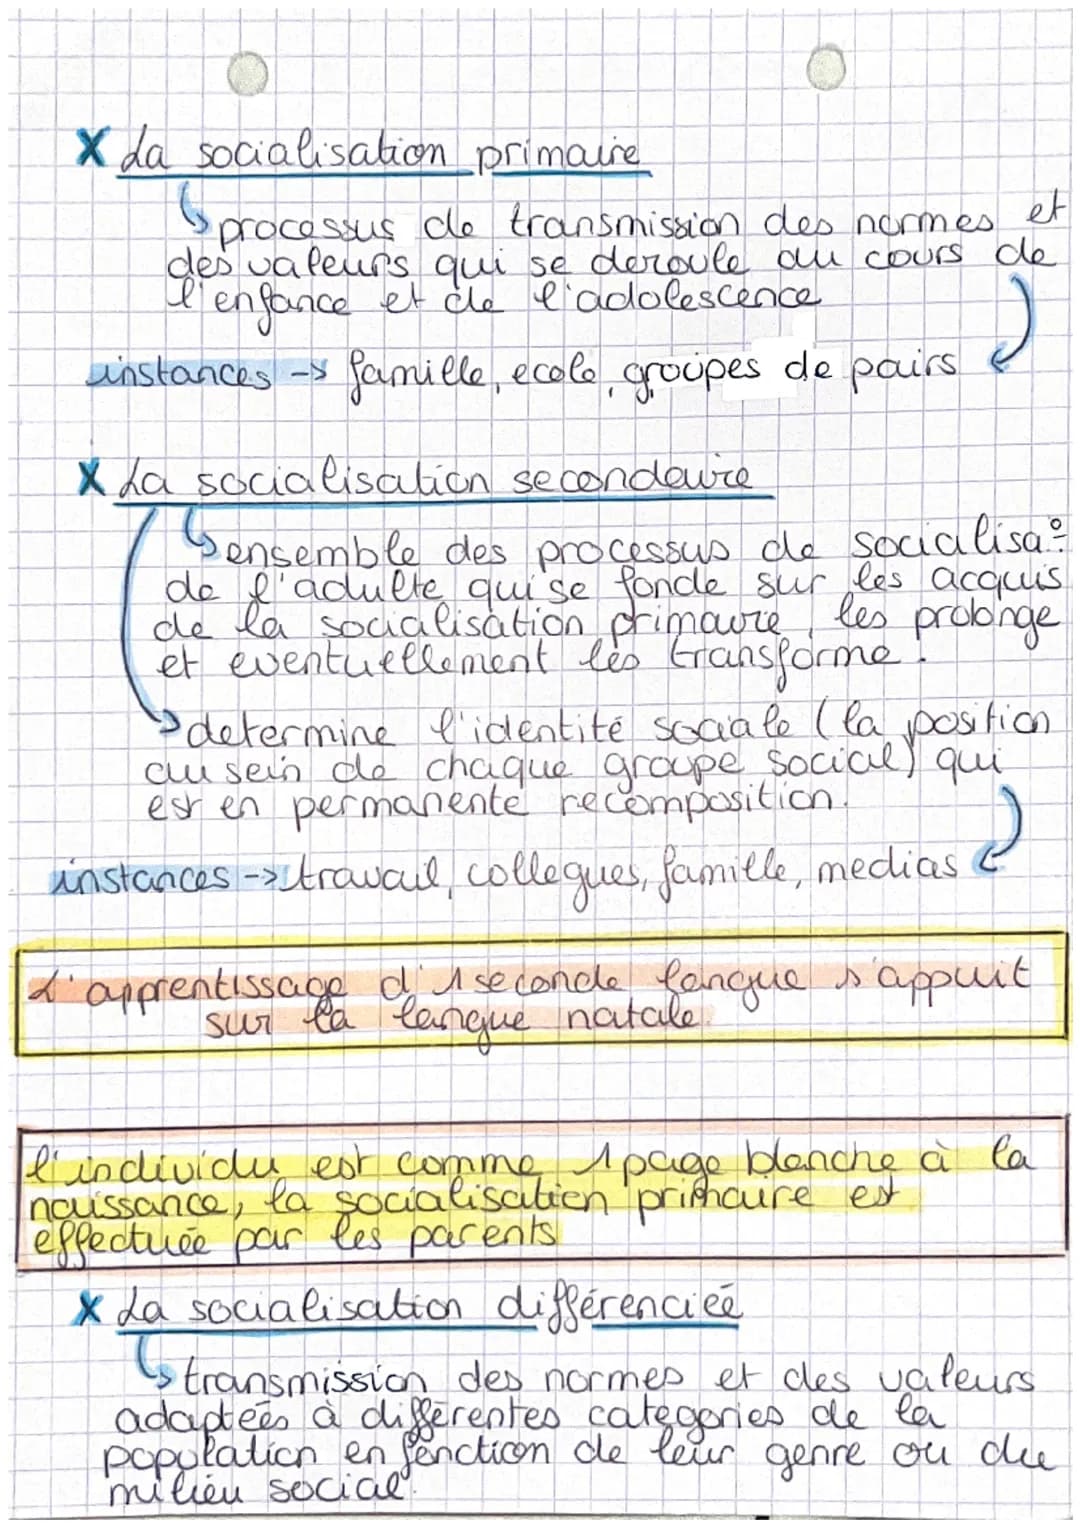 X La socialisation primaire
↳ processus de transmission des normes et
des valeurs qui se deroule au cours de
l'enfance et de l'adolescence
instances -> famille, ecole, groupes de pairs
X La socialisation secondaire
↳ ensemble des processus de socialisa°
de l'adulte qui se fonde sur les acquis
de la socialisation primaire, les prolonge
et eventuellement les transforme.
→ determine l'identité sociale (la position
au sein de chaque groupe social) qui
est en permanente recomposition.
instances -> travail, collegues, famille, medias
L'apprentissage d'1 seconde langue s'appuit
sur la langue natale.
l'individu est comme 1 page blanche à la
naissance, la socialisation primaire est
effectuée par les parents
X La socialisation différenciée
↳ transmission des normes et des valeurs
adaptées à différentes categories de la
population en fonction de leur genre ou du
milieu social.